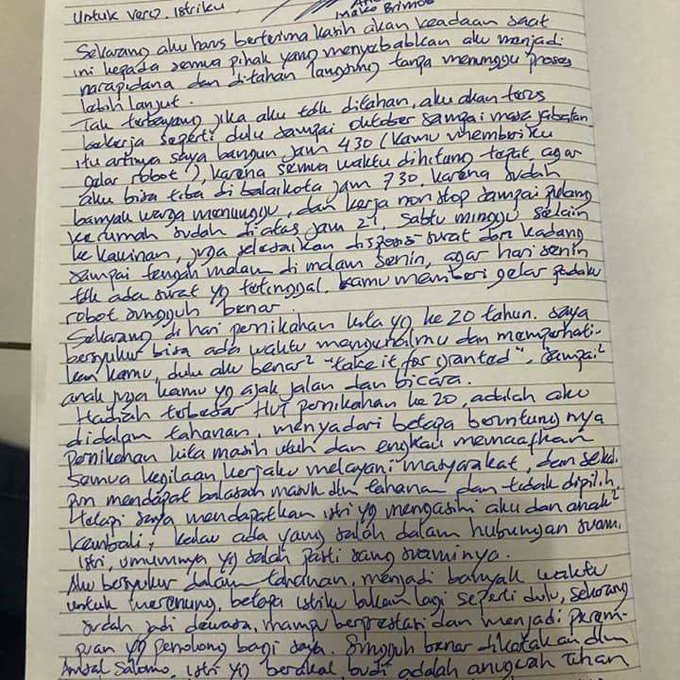 Untuk Vero, Istriku,
Mako Brimob
Sekarang aku harus berterima kasih akan keadaan saat
ini kepada semua pihak yang menyebabkan aku menjadi
narapidana dan ditahan langsung tanpa menunggu proses
lebih lanjut.
Tak terbayang jika aku tdk ditahan, aku akan terus
bekerja seperti dulu sampai oktober sampai masa jabatan.
itu artinya saya bangun jam 430 (kamu memberiku
gelar robot), karena semua waktu dihitung tepat, agar
aku bisa tiba di balaikota jam 730. karena sudah
banyak warga menunggu, dan kerja non stop sampai pulang
kerumah sudah diatas jam 21, Sabtu minggu selain
ke kawinan, juga selesaikan disposisi surat dan kadang
sampai tengah malam di malam senin, agar hari senin
tdk ada surat yg tertinggal. kamu memberi gelar padaku
robot sungguh benar.
Sekarang di hari pernikahan kita yg ke 20 tahun. saya
bersyukur bisa ada waktu mengenalmu dan memperhati-
kan kamu, dulu aku benar² "take it for granted", sampai²
anak juga kamu yg ajak jalan dan bicara.
Hadiah terbesar HUT pernikahan ke 20, adalah aku
didalam tahanan, menyadari betapa beruntungnya
pernikahan kita masih utuh dan engkau memaafkan
semua kegilaan kerjaku melayani masyarakat, dan seka
pun mendapat balasan masuk dlm tahanan dan tidak dipilih.
tetapi saya mendapatkan istri yg mengasihi aku dan anak²
kembali, kalau ada yang salah dalam hubungan suami.
istri, umumnya yg salah pasti sang suaminya.
Aku bersyukur dalam tahanan, menjadi banyak waktu
untuk merenung, betapa istriku bukan lagi seperti dulu, sekarang
sudah jadi dewasa, mampu berprestasi dan menjadi perem-
puan yg penolong bagi saya. Sungguh benar dikatakan dlm
Amsal Salomo, istri yg berakal budi adalah anugerah Tuhan